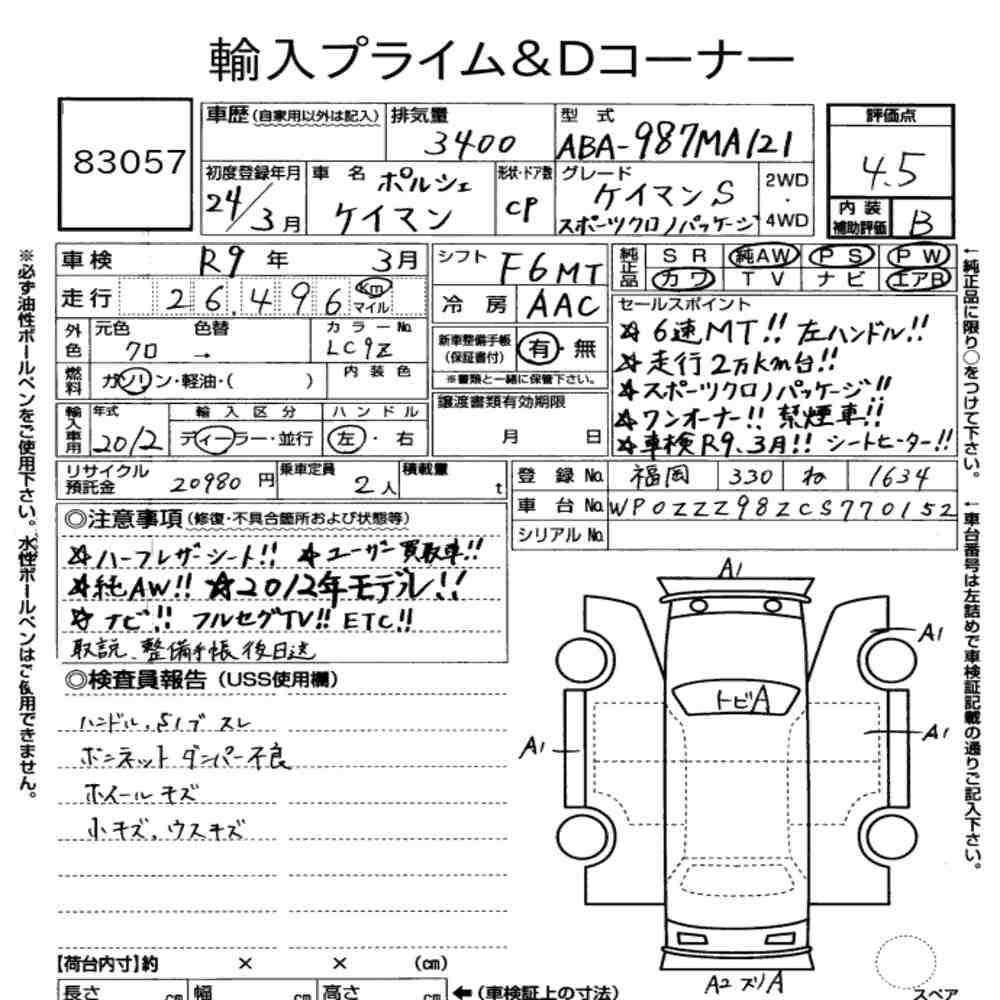 輸入プライム&Dコーナー
83057
車歴 (自家用以外は記入)
排気量 3400
型式 ABA-987MA121
評価点 4.5
初度登録年月 24/3月
車名 ポルシェ ケイマン
形状・ドア数 CP
グレード ケイマンS スポーツクロノパッケージ
2WD・4WD
内装補助評価 B
車検 R9年 3月
走行 26,496 Km マイル
シフト F6MT
冷房 AAC
純正品 SR 純AW PS PW
カワ TV ナビ エアB
外色 元色 クロ 色替 → カラーNo. LC9Z
燃料 ガソリン・軽油・( ) 内装色
新車整備手帳(保証書付) 有・無
※書類と一緒に保管下さい。
譲渡書類有効期限 月 日
セールスポイント
☆6速MT!! 左ハンドル!!
☆走行2万km台!!
☆スポーツクロノパッケージ!!
☆ワンオーナー!! 禁煙車!!
☆車検R9.3月!! シートヒーター!!
輸入車用 年式 2012 輸入区分 ディーラー・並行 ハンドル 左・右
リサイクル預託金 20980円 乗車定員 2人 積載量 t
登録No. 福岡 330 ね 1634
車台No. WP0ZZZ98ZCS770152
シリアルNo.
◎注意事項 (修復・不具合箇所および状態等)
☆ハーフレザーシート!! ☆ユーザー買取車!!
☆純AW!! ☆2012年モデル!!
☆ナビ!! フルセグTV!! ETC!!
取説、整備手帳後日送
◎検査員報告 (USS使用欄)
ハンドル、SIブスレ
ボンネットダンパー不良
ホイールキズ
小キズ、ウスキズ
A1
A1
トビA
A1
A1
A2 スリA
スペア
【荷台内寸】約 × × (cm)
長さ cm 幅 cm 高さ cm ←(車検証上の寸法)
※必ず油性ボールペンをご使用下さい。水性ボールペンはご使用できません。
←純正品に限り○をつけて下さい。
←車台番号は左詰めで車検証記載の通りご記入下さい。